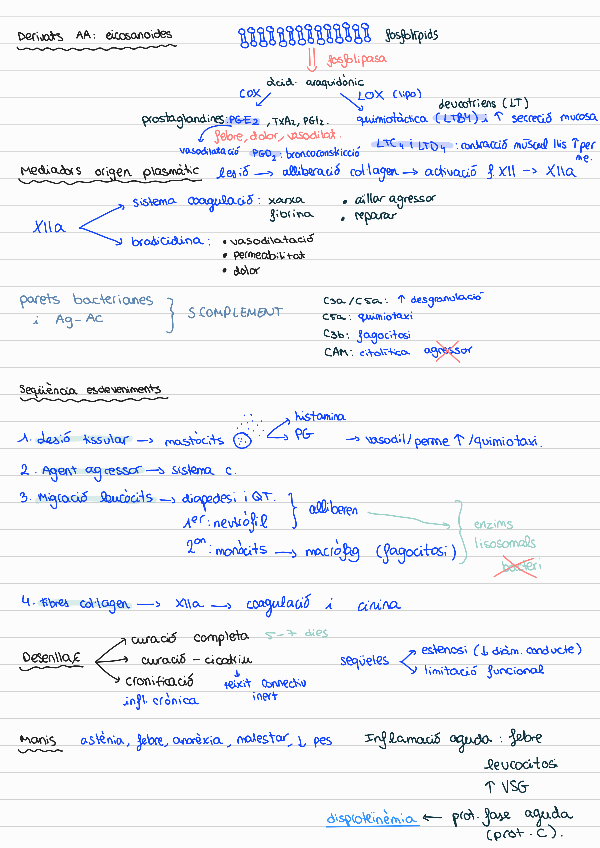 Derivats AA: eicosanoides
fosfolípids
fosfolipasa
àcid araquidònic
COX
LOX (lipo)
leucotriens (LT)
prostaglandines: PGE2, TXA2, PGI2.
quimiotàctica (LTB4) i ↑ secreció mucosa
febre, dolor, vasodilat.
LTC4 i LTD4: contracció múscul llis ↑ per
me.
vasodilatació PGD2: broncoconstricció
Mediadors origen plasmàtic lesió → alliberació col·lagen → activació f. XII → XIIa
XIIa
sistema coagulació: xarxa
fibrina
• aïllar agressor
• reparar
bradicidina: • vasodilatació
• permeabilitat
• dolor
parets bacterianes
i Ag-AC
S COMPLEMENT
C3a/C5a: ↑ desgranulació
C5a: quimiotaxi
C3b: fagocitosi
CAM: citolítica agressor
Seqüència esdeveniments
1. Lesió tissular → mastòcits
histamina
PG
→ vasodil/perme ↑/quimiotaxi.
2. Agent agressor → sistema c.
3. Migració leucòcits → diapedesi i QT.
1er: neutròfil
2on: monòcits → macròfag (fagocitosi)
alliberen
enzims
lisosomals
bacteri
4. Fibres col·lagen → XIIa → coagulació i cinina
Desenllaç
curació completa 5-7 dies
curació - cicatriu
cronificació
infl. crònica
teixit connectiu
inert
seqüeles
estenosi (↓ diàm. conducte)
limitació funcional
Manis astènia, febre, anorèxia, malestar, ↓ pes
Inflamació aguda: febre
leucocitosi
↑ VSG
disproteinèmia ← prot. fase aguda
(prot. C).